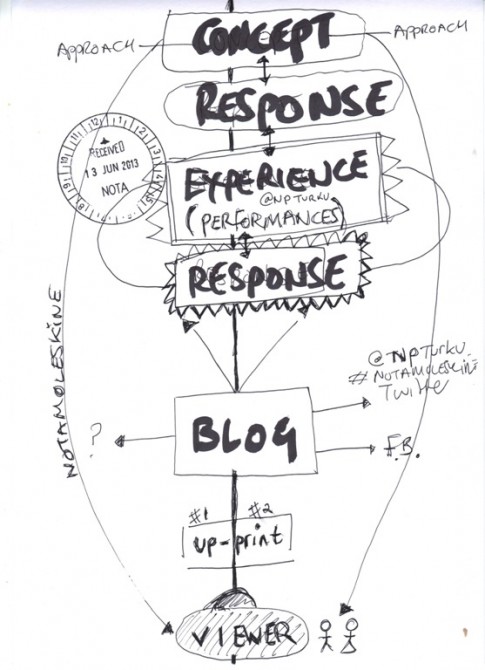 CONCEPT
APPROACH
APPROACH
RESPONSE
RECEIVED
13 JUN 2013
NOTA
EXPERIENCE
@NPTURKU
(PERFORMANCES)
RESPONSE
NOTAMOLESKINE
@NPTURKU
#NOTAMOLESKINE
Twitter
BLOG
?
F.B.
#1 #2
up-print
VIEWER